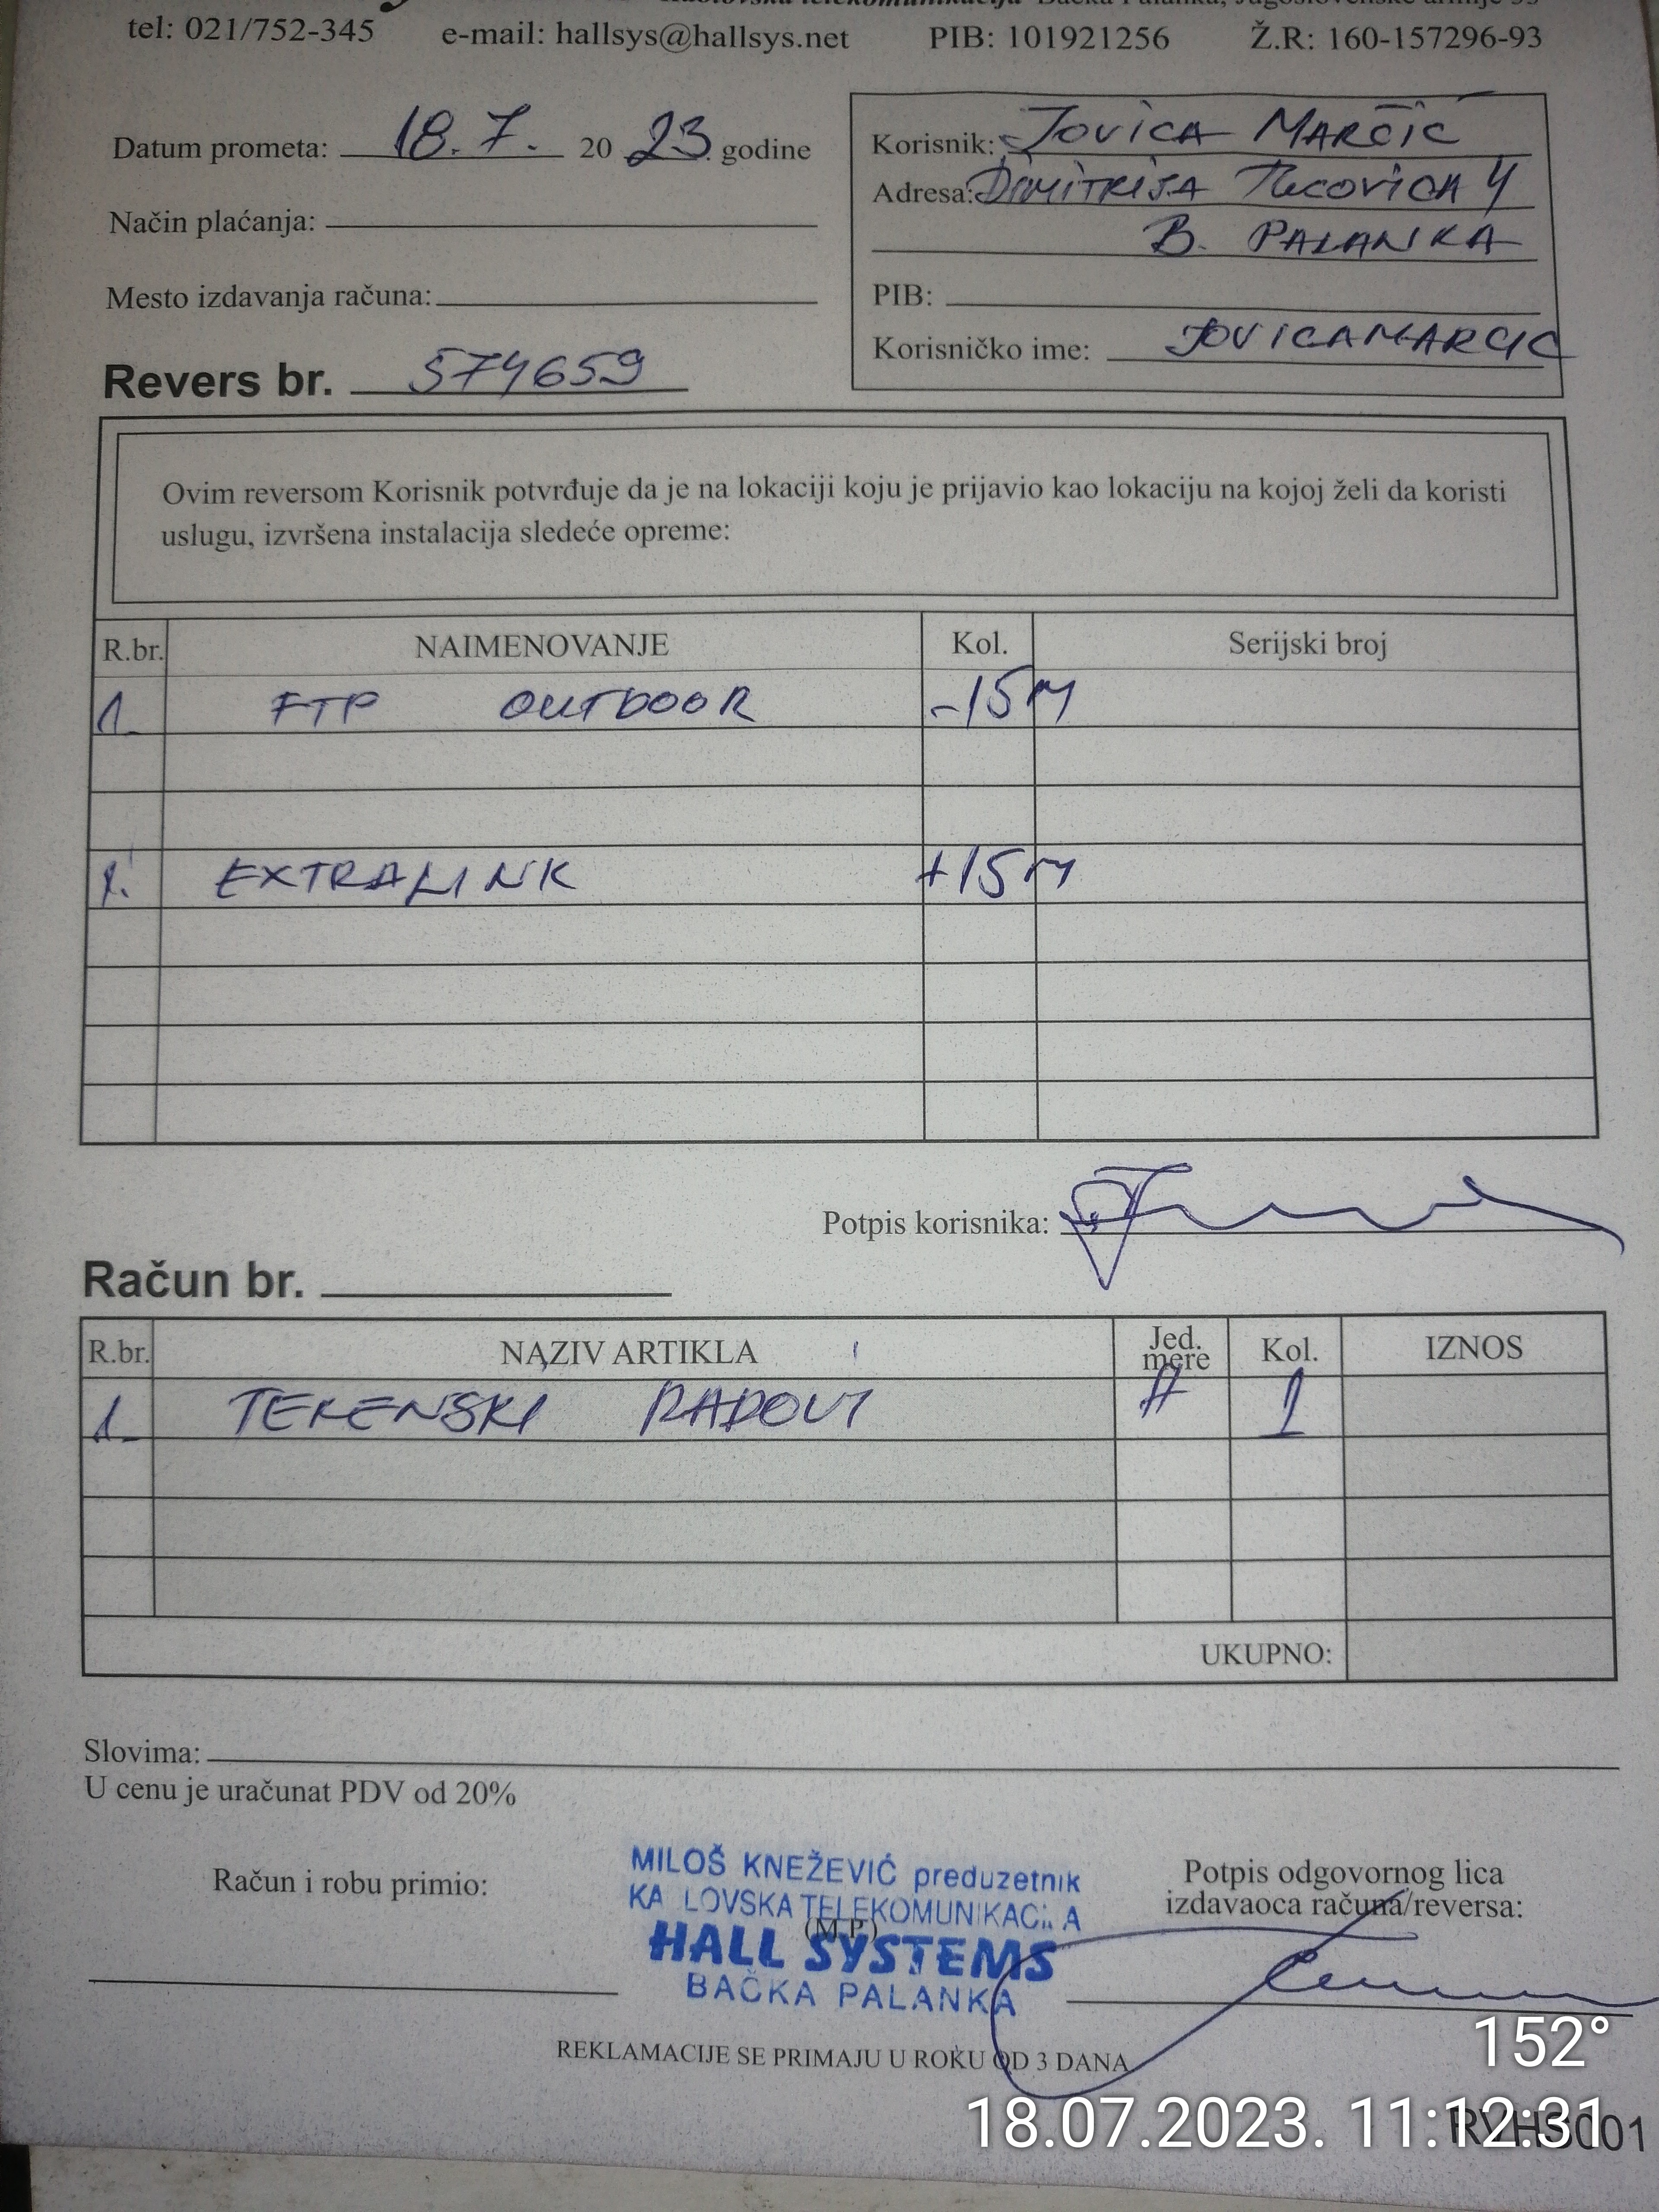 tel: 021/752-345 e-mail: hallsys@hallsys.net PIB: 101921256 Ž.R: 160-157296-93
Datum prometa: 18.7. 2023 godine
Način plaćanja:
Mesto izdavanja računa:
Revers br. 574659
Korisnik: JOVICA MARČIĆ
Adresa: DIMITRIJA TUCOVIĆA 4
B. PALANKA
PIB:
Korisničko ime: JOVICAMARCIC
Ovim reversom Korisnik potvrđuje da je na lokaciji koju je prijavio kao lokaciju na kojoj želi da koristi
uslugu, izvršena instalacija sledeće opreme:
R.br. NAIMENOVANJE Kol. Serijski broj
1. FTP OUTDOOR -15M
1. EXTRALINK +15M
Potpis korisnika:
Račun br.
R.br. NAZIV ARTIKLA Jed. mere Kol. IZNOS
1. TERENSKI RADOVI # 1
UKUPNO:
Slovima:
U cenu je uračunat PDV od 20%
Račun i robu primio:
MILOŠ KNEŽEVIĆ preduzetnik
KA LOVSKA TELEKOMUNIKACIJA
(M.P.)
HALL SYSTEMS
BAČKA PALANKA
Potpis odgovornog lica
izdavaoca računa/reversa:
REKLAMACIJE SE PRIMAJU U ROKU OD 3 DANA
152°
18.07.2023. 11:12:31
RVHS001